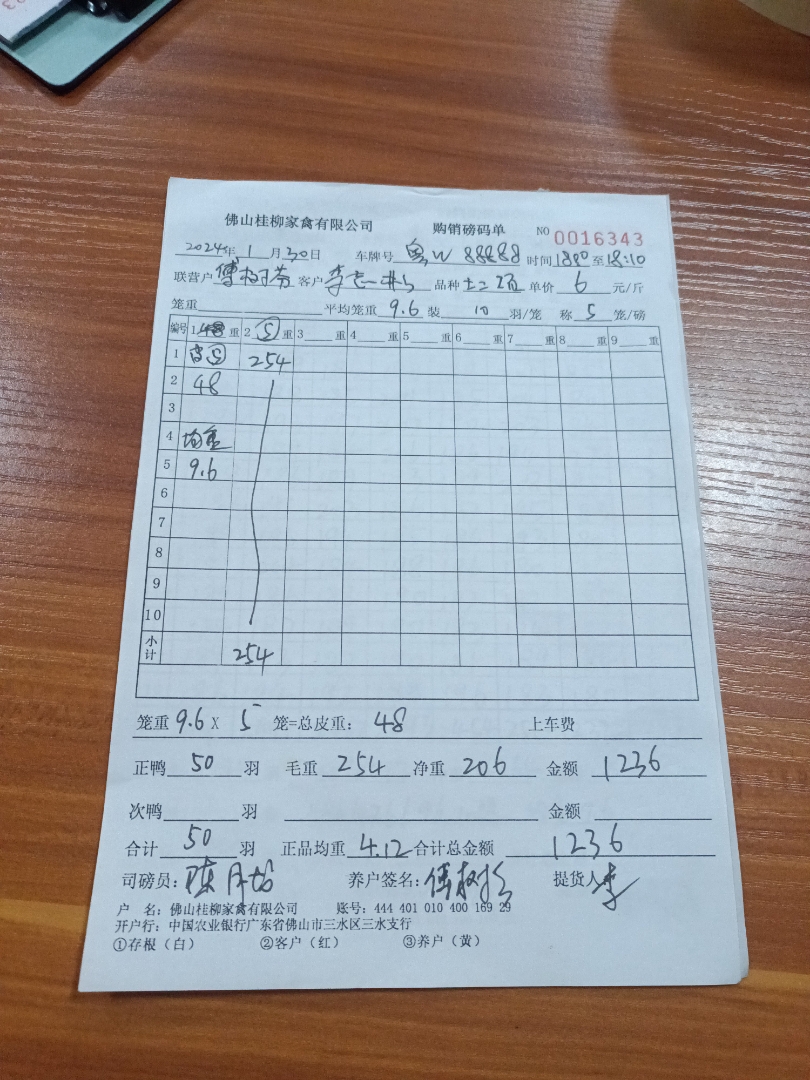 佛山桂柳家禽有限公司 购销磅码单 NO 0016343
2024年 1 月 30 日 车牌号 粤W 88888 时间 至 18:10
联营户 客户 品种 单价 6 元/斤
笼重 平均笼重 9.6 装 10 羽/笼 称 5 笼/磅
编号 1 重 2 5 重 3 重 4 重 5 重 6 重 7 重 8 重 9 重
1 254
2 48
3
4 均重
5 9.6
6
7
8
9
10
小计 254
笼重 9.6 X 5 笼=总皮重: 48 上车费
正鸭 50 羽 毛重 254 净重 206 金额 1236
次鸭 羽 金额
合计 50 羽 正品均重 4.12 合计总金额 1236
司磅员: 陈 养户签名: 傅树 提货人 李
户 名: 佛山桂柳家禽有限公司 账号: 444 401 010 400 169 29
开户行: 中国农业银行广东省佛山市三水区三水支行
①存根(白) ②客户(红) ③养户(黄)